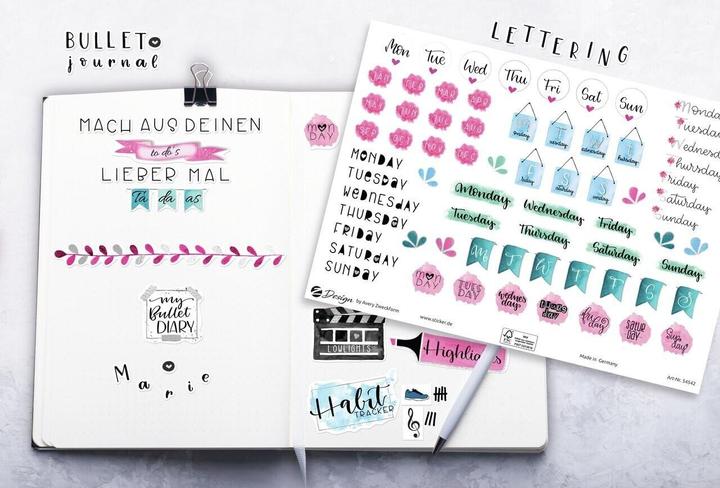 BULLET
journal
LETTERING
MACH AUS DEINEN
to do's
LIEBER MAL
Ta da as
my
Bullet
DIARY
Marie
MON
DAY
LOWLIGHTS
Highlights
Habit
TRACKER
Mon Tue Wed Thu Fri Sat Sun
JAN FEB MAR APR
MAI JUN JUL AUG
SEP OKT NOV DEC
MONDAY
TUESDAY
WEDNESDAY
THURSDAY
FRIDAY
SATURDAY
SUNDAY
Monday Wednesday Friday
Tuesday Thursday Saturday Sunday
M T W T F S S
MON
DAY
TUES
DAY
wednes
day
THURS
DAY
fri
day
SATUR
DAY
Sun
day
Monday
Tuesday
Wednesday
Thursday
Friday
Saturday
Sunday
Z Design by Avery Zweckform
www.sticker.de
FSC
Made in Germany
Art.-Nr. 54542